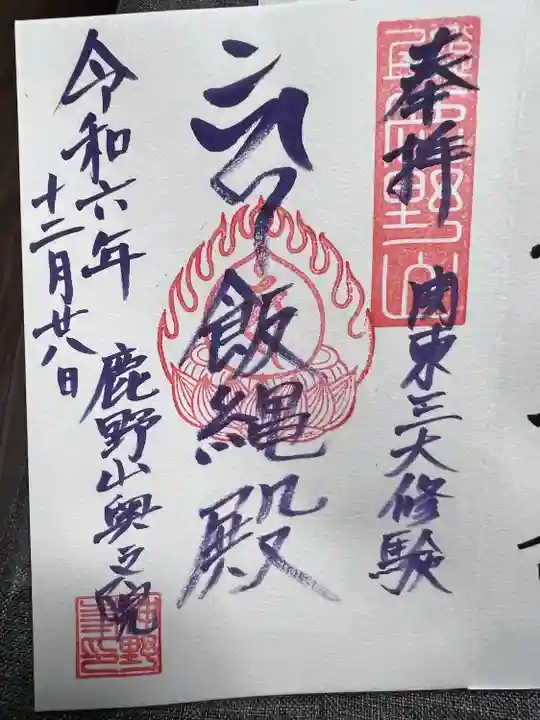 奉拝
関東三大修験
飯縄殿
令和六年
十二月廿八日
鹿野山奥之院
鹿野山